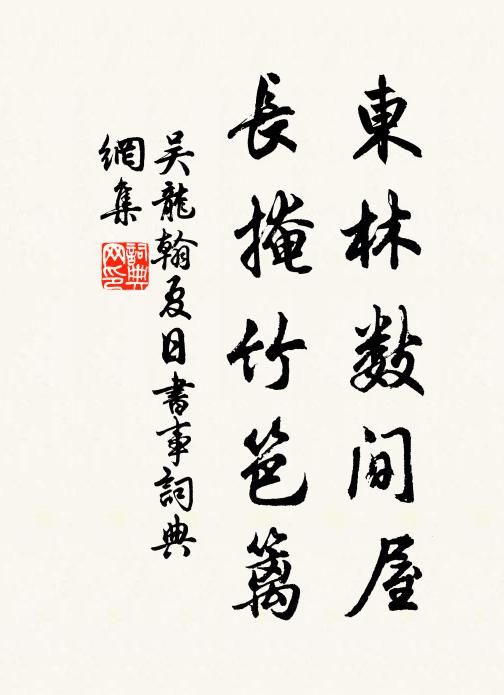 東林数间屋
長掩竹笆籬
吴龍翰夏日書事詞典
網集
詞典
网印